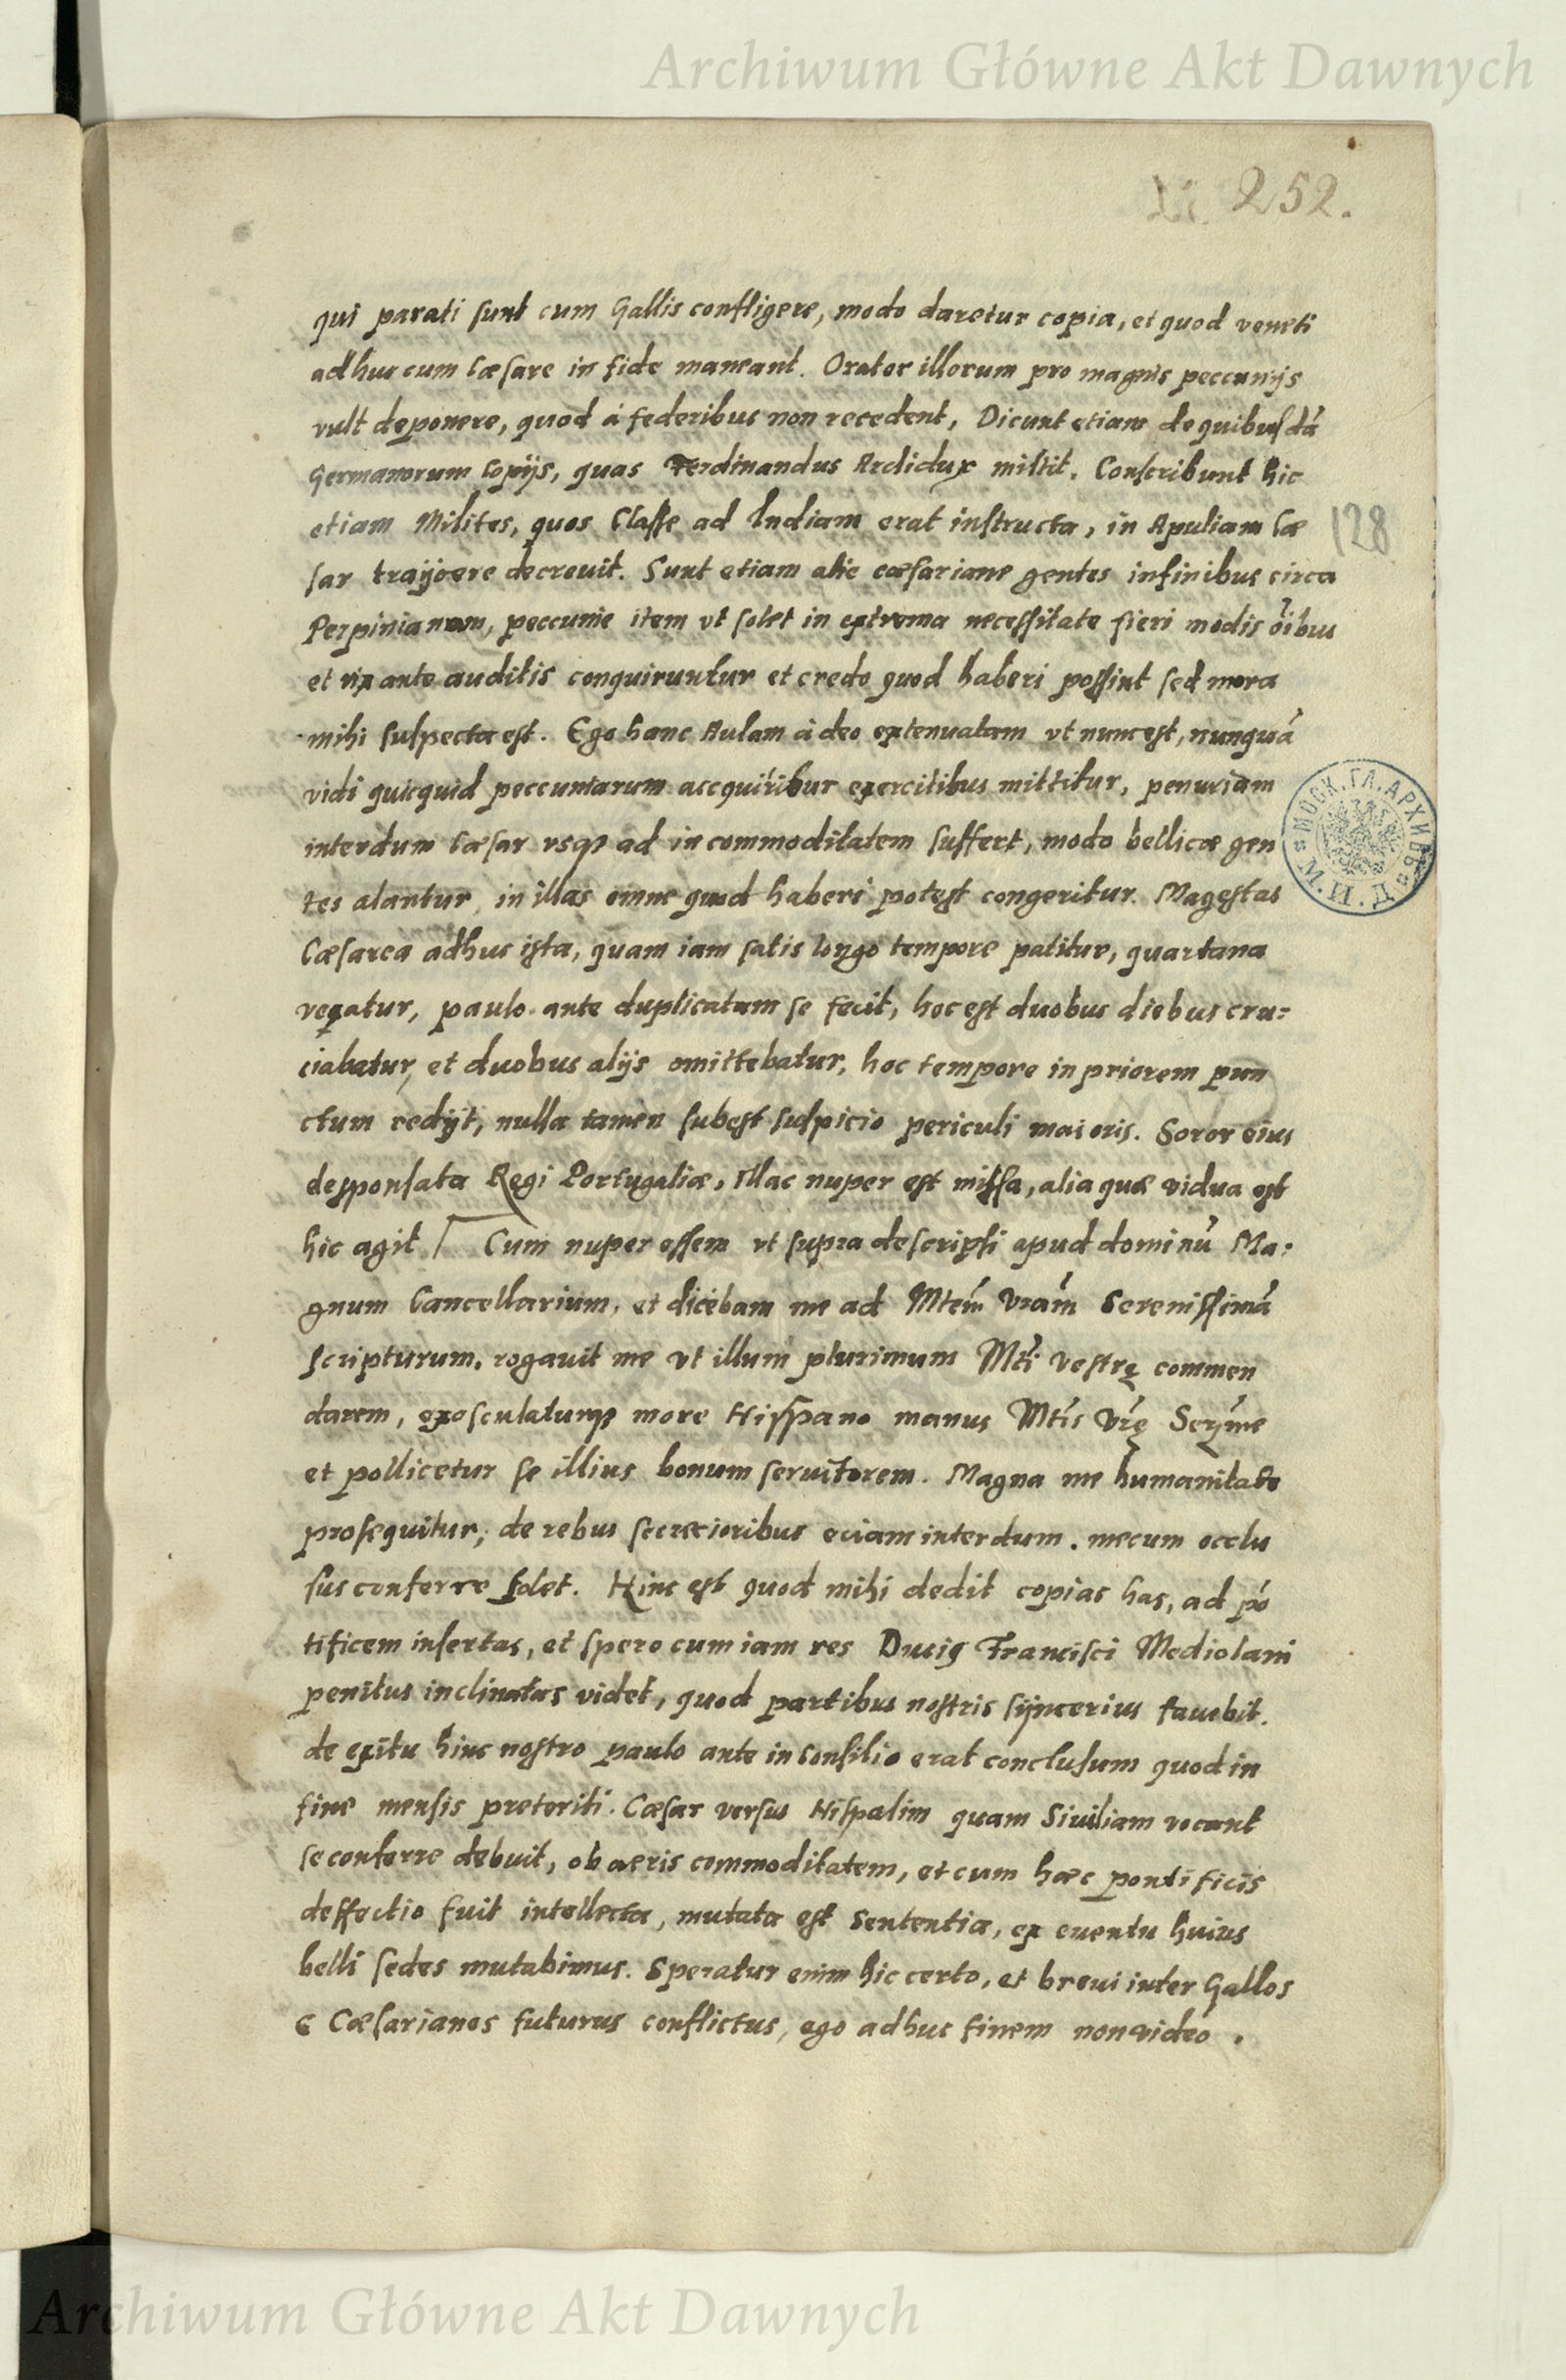 Archiwum Główne Akt Dawnych
252.
qui parati sunt cum Gallis confligere, modo daretur copia, et quod veneti
adhuc cum Cæsare in fide maneant. Orator illorum pro magnis peccunijs
vult deponere, quod à federibus non recedent, Dicunt etiam de quibusdã
Germanorum Copijs, quas Ferdinandus Archidux mittit. Conscribunt hic
etiam Milites, quos Classe ad Indiam erat instructa, in Apuliam Cæ
sar traijcere decrevit. Sunt etiam alie cæsariane gentes in finibus circa
Perpinianum, peccunie item vt solet in extrema necessitate fieri modis oĩbus
et vix ante auditis conquiruntur et credo quod haberi possint sed mora
mihi suspecta est. Ego hanc Aulam à deo extenuatam vt nunc est, nunquã
vidi quicquid peccuniarum accquiritur exercitibus mittitur, penuriam
interdum Cæsar vsqꝫ ad incommoditatem suffert, modo bellicæ gen
tes alantur, in illas omne quod haberi potest congeritur. Magestas
Cæsarea adhuc ista, quam iam satis longo tempore patitur, quartana
vexatur, paulo ante duplicatam se fecit, hoc est duobus diebus cru=
ciabatur, et duobus alijs omittebatur, hoc tempore in priorem pun
ctum redijt, nulla tamen subest suspicio periculi maioris. Soror eius
desponsata Regi Portugaliæ, illac nuper est missa, alia quæ vidua est
hic agit / Cum nuper essem vt supra descripsi apud dominũ Ma:
gnum Cancellarium, et dicebam me ad Mtem̃ Vram̃ Serenissimã
scripturum. rogauit me vt illum plurimum Mti vestrę commen
darem, exosculaturqꝫ more Hispano manus Mtis Vrę Serme
et pollicetur se illius bonum seruitorem. Magna me humanitate
prosequitur, de rebus secrecioribus eciam interdum. mecum occlu
sus conferre solet. Hinc est quod mihi dedit copias has, ad põ
tificem insertas, et spero cum iam res Ducis Francisci Mediolani
penitus inclinatas videt, quod partibus nostris sijncerius fauebit.
de exitu hinc nostro paulo ante in Consilio erat conclusum quod in
fine mensis preteriti. Cæsar versus Hispalim quam Siuiliam vocant
se conferre debuit, ob aeris commoditatem, et cum hæc pontificis
deffectio fuit intellecta, mutata est sententia, ex euentu huius
belli sedes mutabimus. Speratur enim hic certo, et breui inter Gallos
& Cæsarianos futurus conflictus, ego adhuc finem non video.
128
МОСК. ГЛ. АРХИВЪ М. И. Д.
Archiwum Główne Akt Dawnych